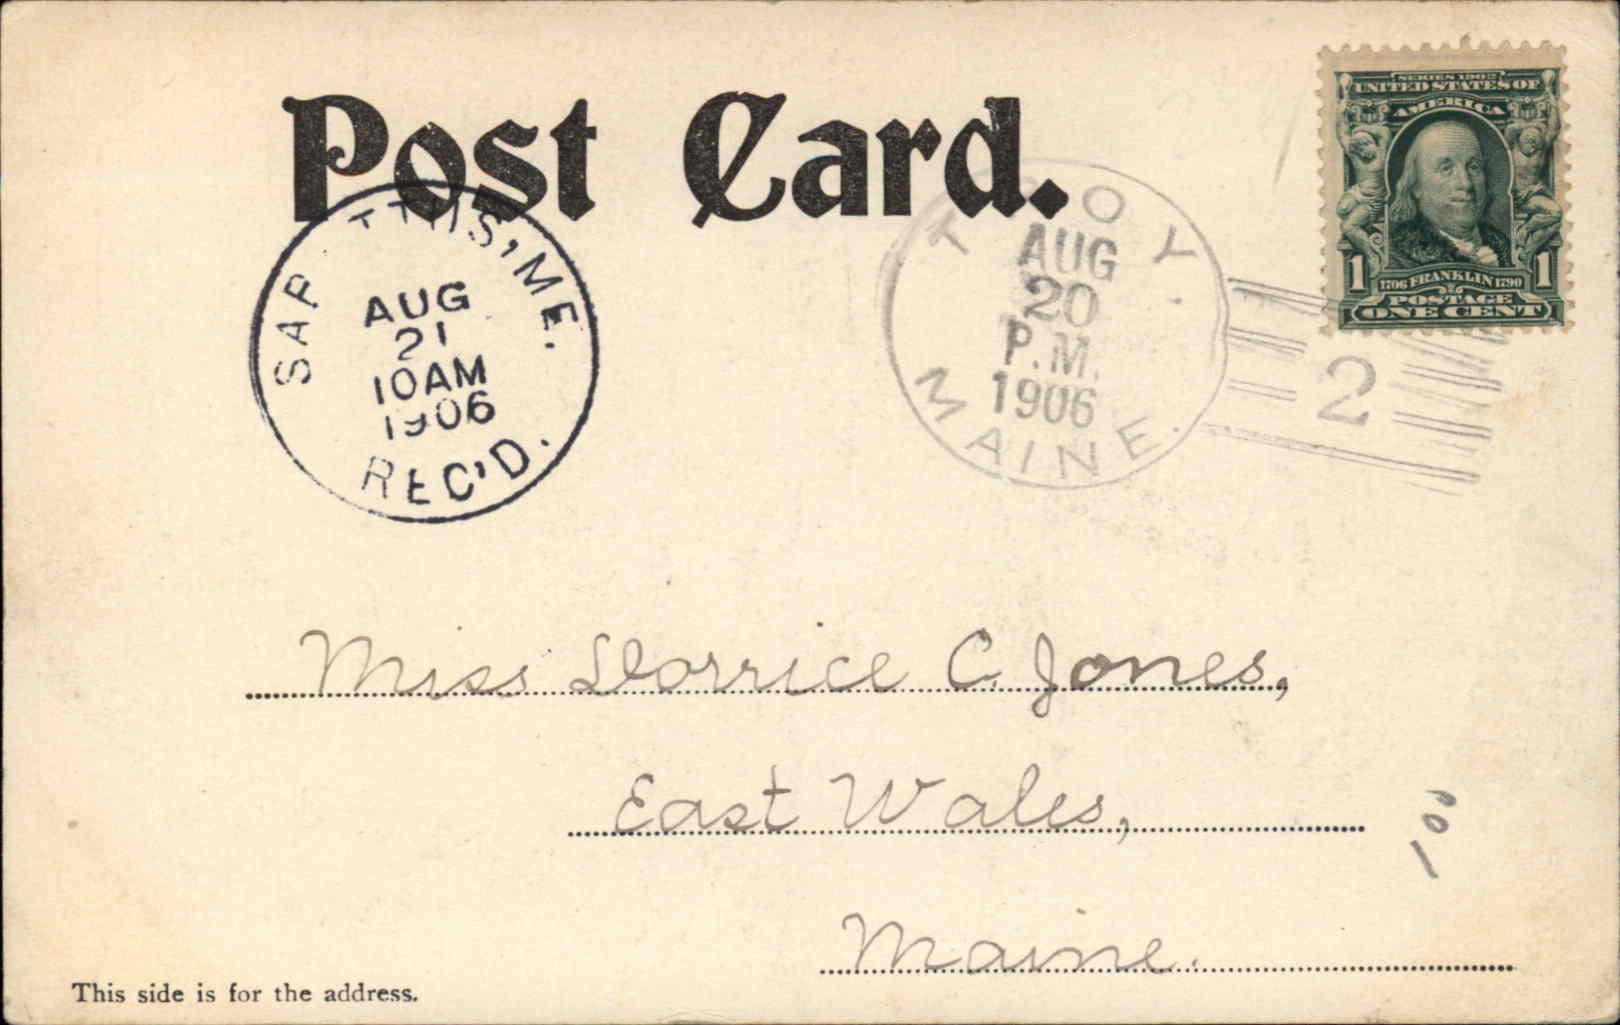 Post Card.
SERIES 1902
UNITED STATES OF
AMERICA
1 1706 FRANKLIN 1790 1
POSTAGE
ONE CENT
TROY.
AUG
20
P.M.
1906
MAINE.
2
ME.
AUG
21
10AM
1906
REC'D.
Miss Dorrice C. Jones,
East Wales,
Maine.
100
This side is for the address.